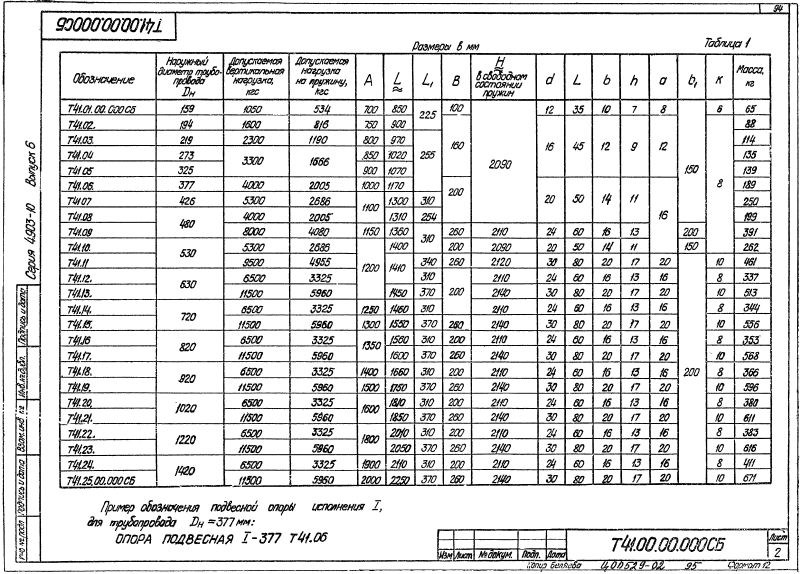 94
Т41.00.00.000СБ
Размеры в мм
Таблица 1
Обозначение | Наружный диаметр трубопровода Dн | Допускаемая вертикальная нагрузка, кгс | Допускаемая нагрузка на пружину, кгс | A | L ≈ | L₁ | B | H ≈ в свободном состоянии пружин | d | L | b | h | a | b₁ | к | Масса, кг
Т41.01.00.000СБ | 159 | 1050 | 534 | 700 | 850 | 225 | 100 | 2090 | 12 | 35 | 10 | 7 | 8 | 150 | 6 | 65
Т41.02. | 194 | 1600 | 816 | 750 | 900 | 160 | 16 | 45 | 12 | 9 | 12 | 8 | 88
Т41.03. | 219 | 2300 | 1190 | 800 | 970 | 255 | 114
Т41.04 | 273 | 3300 | 1666 | 850 | 1020 | 135
Т41.05 | 325 | 900 | 1070 | 139
Т41.06. | 377 | 4000 | 2005 | 1000 | 1170 | 200 | 20 | 50 | 14 | 11 | 16 | 189
Т41.07 | 426 | 5300 | 2686 | 1100 | 1300 | 310 | 250
Т41.08 | 480 | 4000 | 2005 | 1310 | 254 | 199
Т41.09 | 8000 | 4080 | 1150 | 1360 | 310 | 260 | 2110 | 24 | 60 | 16 | 13 | 200 | 391
Т41.10. | 530 | 5300 | 2686 | 1200 | 1400 | 200 | 2090 | 20 | 50 | 14 | 11 | 150 | 262
Т41.11 | 9500 | 4955 | 1410 | 340 | 260 | 2120 | 30 | 80 | 20 | 17 | 20 | 200 | 10 | 461
Т41.12. | 630 | 6500 | 3325 | 310 | 200 | 2110 | 24 | 60 | 16 | 13 | 16 | 8 | 337
Т41.13. | 11500 | 5960 | 1450 | 370 | 2140 | 30 | 80 | 20 | 17 | 20 | 10 | 513
Т41.14. | 720 | 6500 | 3325 | 1250 | 1460 | 310 | 2110 | 24 | 60 | 16 | 13 | 16 | 8 | 344
Т41.15. | 11500 | 5960 | 1300 | 1550 | 370 | 260 | 2140 | 30 | 80 | 20 | 17 | 20 | 10 | 556
Т41.16 | 820 | 6500 | 3325 | 1350 | 1560 | 310 | 200 | 2110 | 24 | 60 | 16 | 13 | 16 | 8 | 353
Т41.17. | 11500 | 5960 | 1600 | 370 | 260 | 2140 | 30 | 80 | 20 | 17 | 20 | 10 | 568
Т41.18. | 920 | 6500 | 3325 | 1400 | 1660 | 310 | 200 | 2110 | 24 | 60 | 16 | 13 | 16 | 8 | 366
Т41.19. | 11500 | 5960 | 1500 | 1750 | 370 | 260 | 2140 | 30 | 80 | 20 | 17 | 20 | 10 | 596
Т41.20. | 1020 | 6500 | 3325 | 1600 | 1810 | 310 | 200 | 2110 | 24 | 60 | 16 | 13 | 16 | 8 | 380
Т41.21. | 11500 | 5960 | 1850 | 370 | 260 | 2140 | 30 | 80 | 20 | 17 | 20 | 10 | 611
Т41.22. | 1220 | 6500 | 3325 | 1800 | 2010 | 310 | 200 | 2110 | 24 | 60 | 16 | 13 | 16 | 8 | 383
Т41.23. | 11500 | 5960 | 2050 | 370 | 260 | 2140 | 30 | 80 | 20 | 17 | 20 | 10 | 616
Т41.24. | 1420 | 6500 | 3325 | 1900 | 2110 | 310 | 200 | 2110 | 24 | 60 | 16 | 13 | 16 | 8 | 411
Т41.25.00.000СБ | 11500 | 5960 | 2000 | 2250 | 370 | 260 | 2140 | 30 | 80 | 20 | 17 | 20 | 10 | 671
Пример обозначения подвесной опоры исполнения I,
для трубопровода Dн = 377 мм:
ОПОРА ПОДВЕСНАЯ I-377 Т41.06
Серия 4.903-10 Выпуск 6
Подпись и дата
Инв.№ дубл.
Взам.инв. №
Подпись и дата
Инв.№ подл.
Изм Лист № докум. Подп. Дата
Т41.00.00.000СБ
Лист
2
Копир Беляева
95
Формат 12